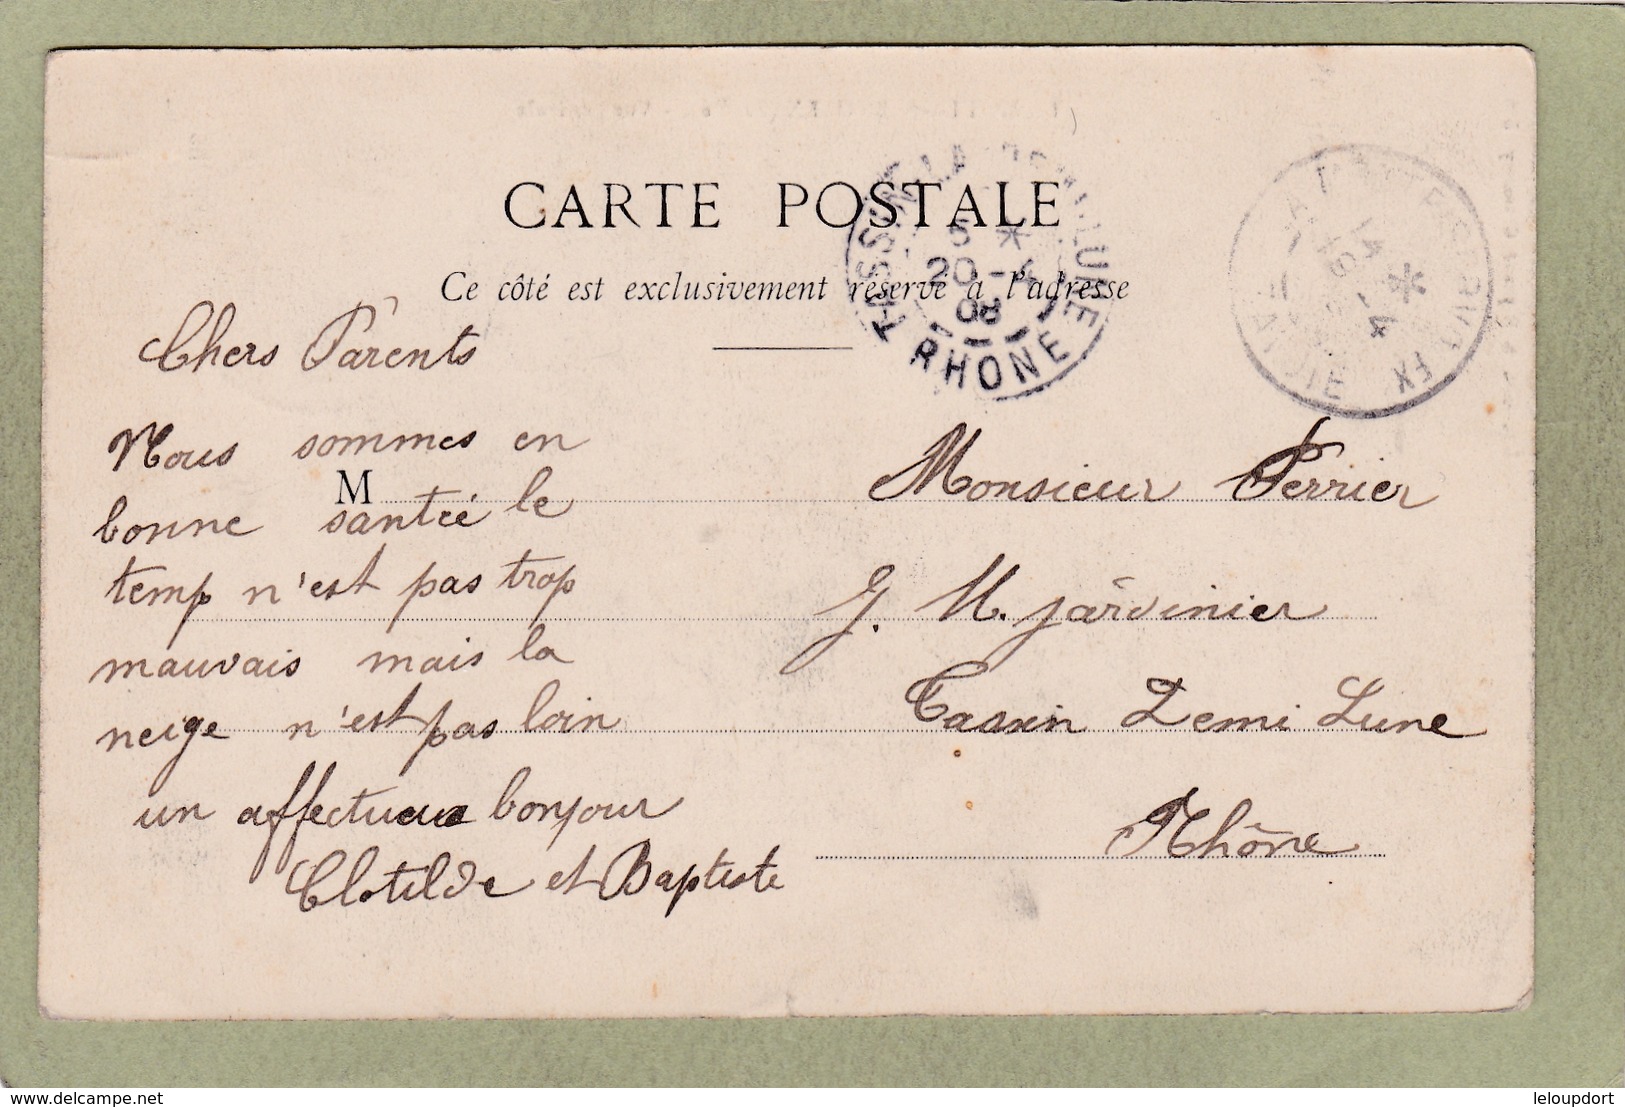 CARTE POSTALE
Ce côté est exclusivement réservé à l'adresse
TASSIN-LA-DEMI-LUNE
5 *
20 - 4
08
RHONE
Chers Parents
Nous sommes en
bonne santée le
temp n'est pas trop
mauvais mais la
neige n'est pas loin
un affectueux bonjour
Clotilde et Baptiste
M
Monsieur Perrier
J. M. jardinier
Tassin Demi Lune
Rhône
www.delcampe.net
leloupdort